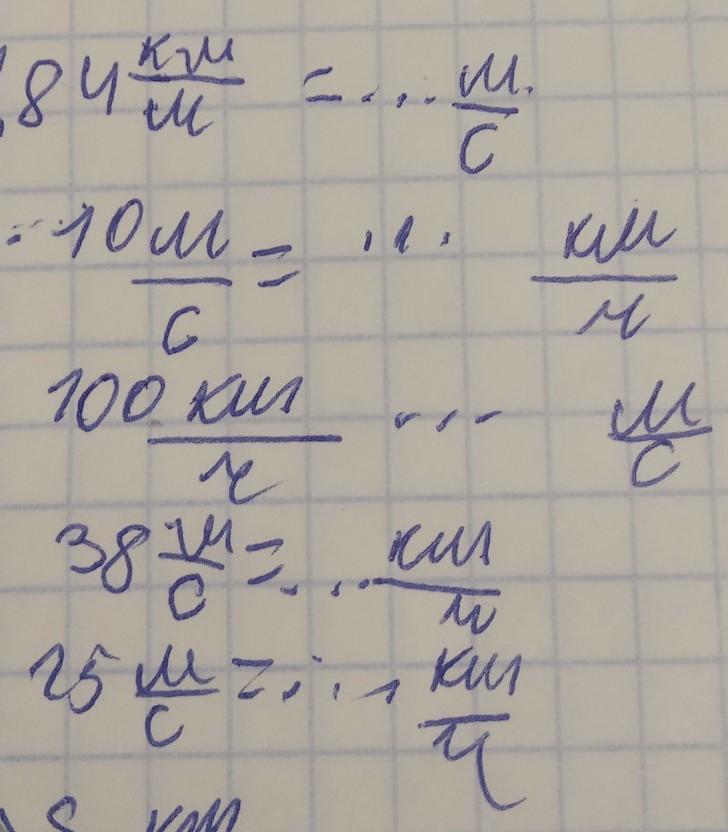 84 км/м = ... м/с
10 м/с = ... км/ч
100 км/ч ... м/с
38 м/с = ... км/ч
25 м/с = ... км/ч
км